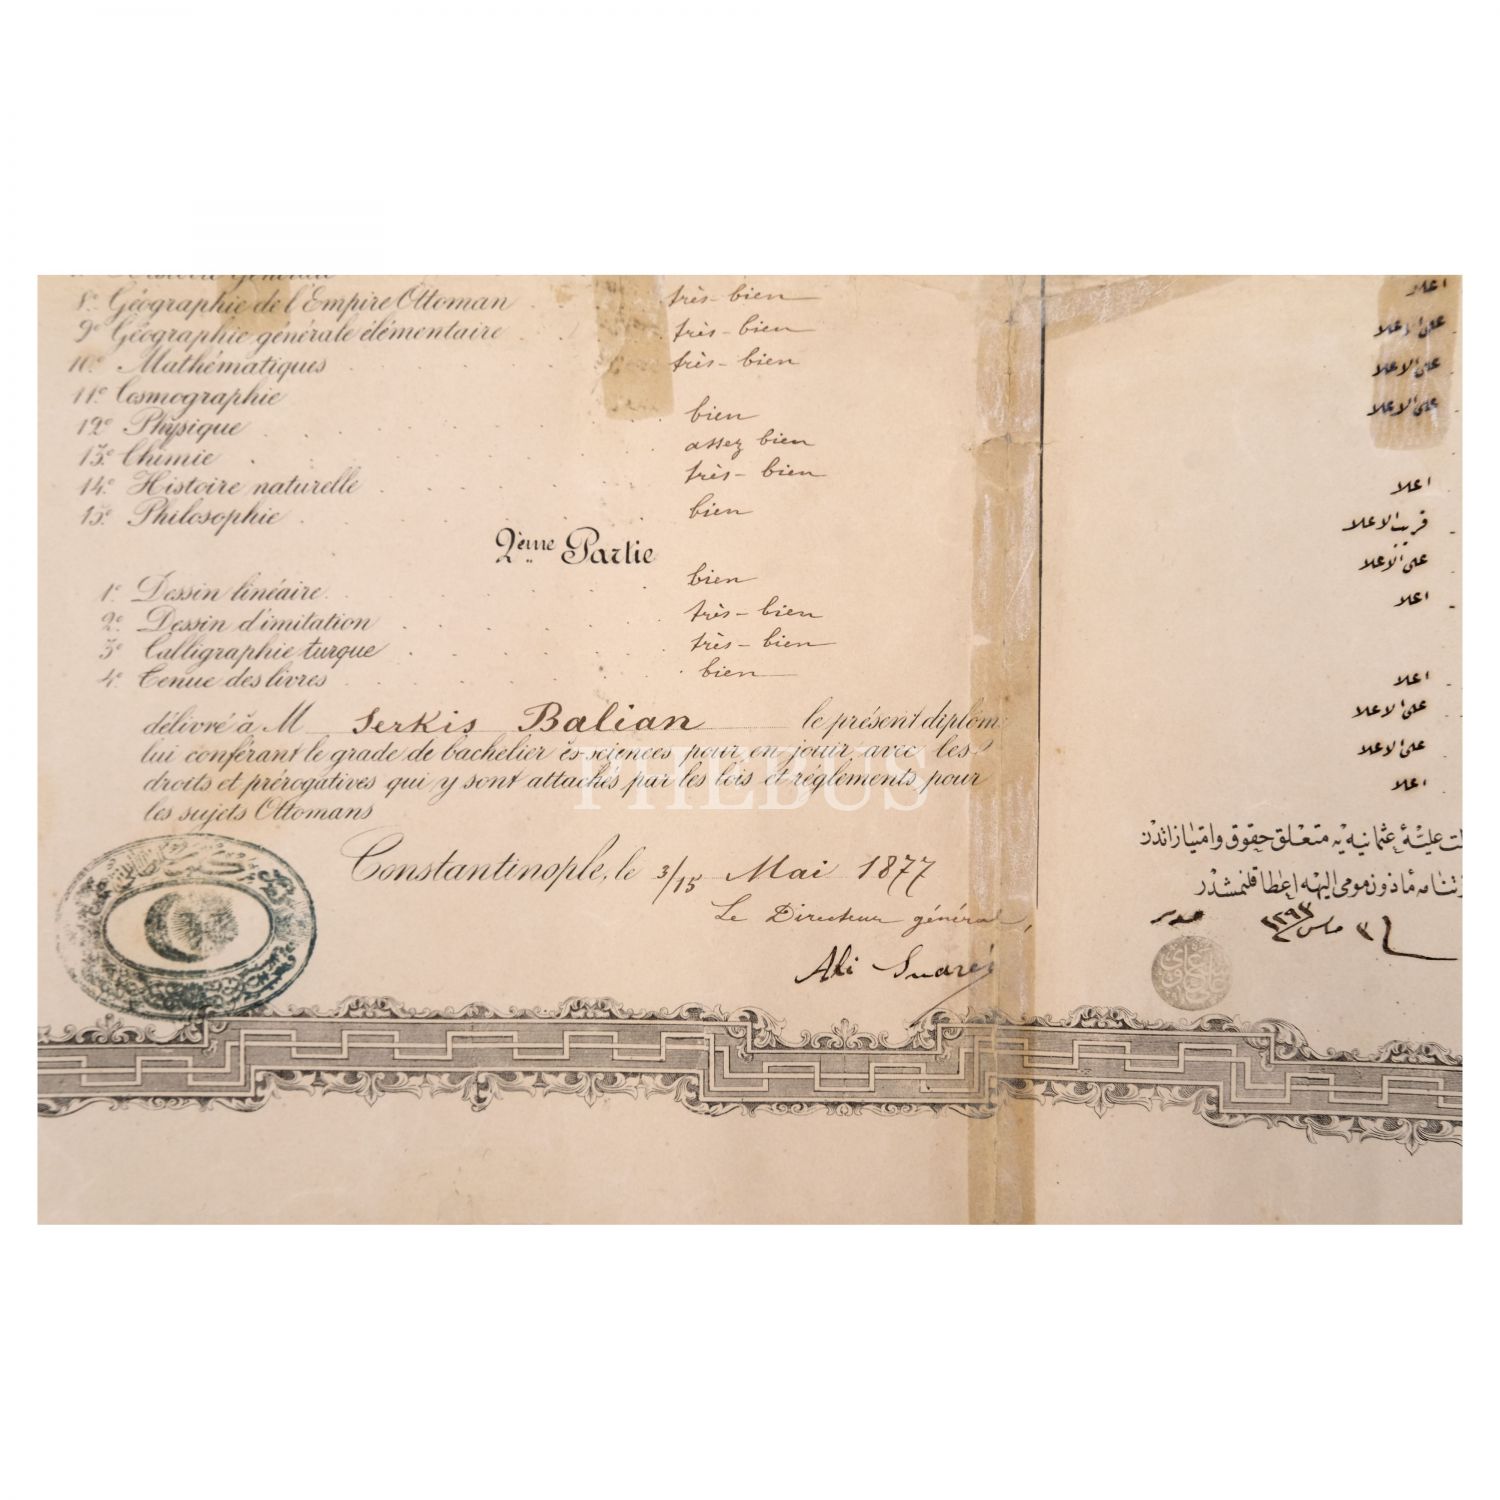 Histoire générale
8º Géographie de l'Empire Ottoman très-bien
9º Géographie générale élémentaire très-bien
10º Mathématiques très-bien
11º Cosmographie bien
12º Physique assez bien
13º Chimie très-bien
14º Histoire naturelle bien
15º Philosophie
2ème Partie
1º Dessin linéaire bien
2º Dessin d'imitation très-bien
3º Calligraphie turque très-bien
4º Tenue des livres bien
délivré à M Serkis Balian le présent diplôm
lui conférant le grade de bachelier ès-sciences pour en jouir avec les
droits et prérogatives qui y sont attachés par les lois et réglements pour
les sujets Ottomans
Constantinople, le 3/15 Mai 1877
Le Directeur général,
Ali Suavi
PHEBUS
اعلا
على الاعلا
على الاعلا
على الاعلا
اعلا
قريب الاعلا
على الاعلا
اعلا
اعلا
على الاعلا
على الاعلا
اعلا
لت عليۀ عثمانيه يه متعلق حقوق وامتيازاتدن
مأذون مومى اليهه اعطا قلنمشدر
٣ مارس ١٢٩٣
مدير